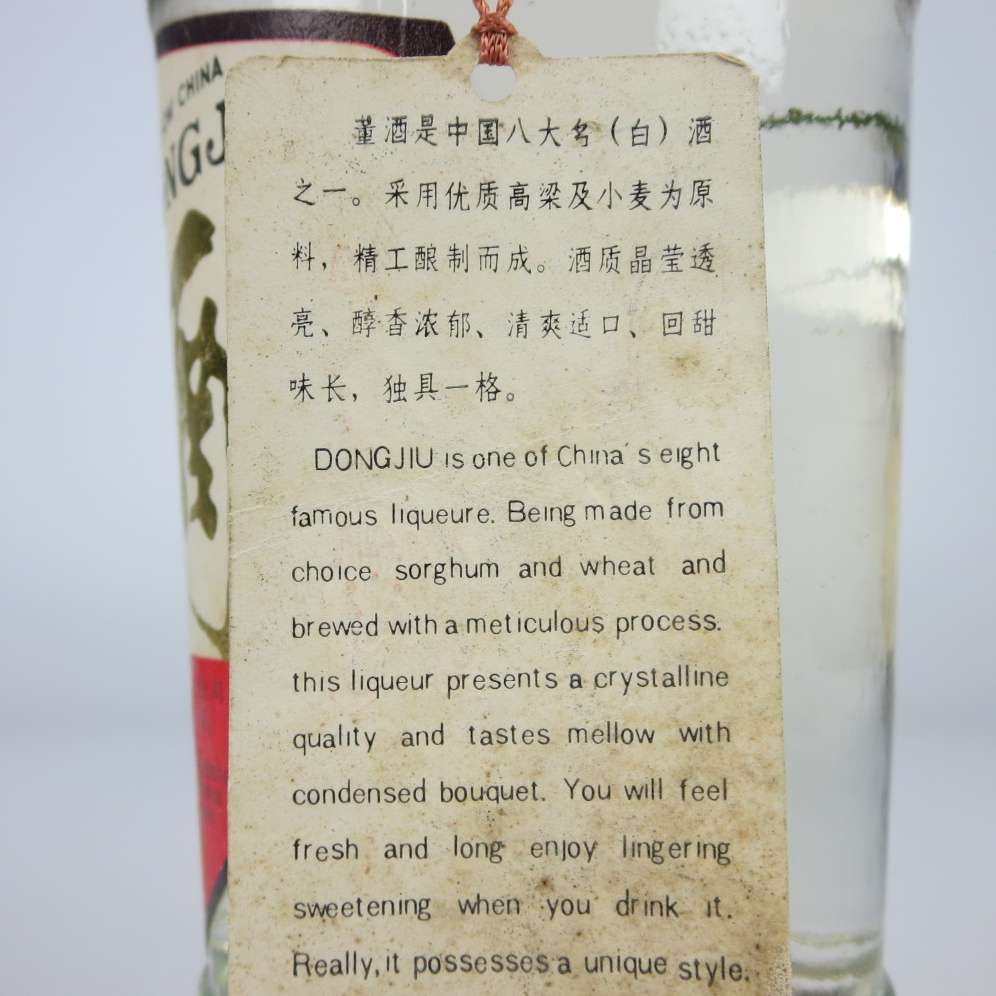 CHINA
NGJ
董酒是中国八大名（白）酒
之一。采用优质高梁及小麦为原
料，精工酿制而成。酒质晶莹透
亮、醇香浓郁、清爽适口、回甜
味长，独具一格。
DONGJIU is one of China's eight
famous liqueure. Being made from
choice sorghum and wheat and
brewed with a meticulous process.
this liqueur presents a crystalline
quality and tastes mellow with
condensed bouquet. You will feel
fresh and long enjoy lingering
sweetening when you drink it.
Really, it possesses a unique style.